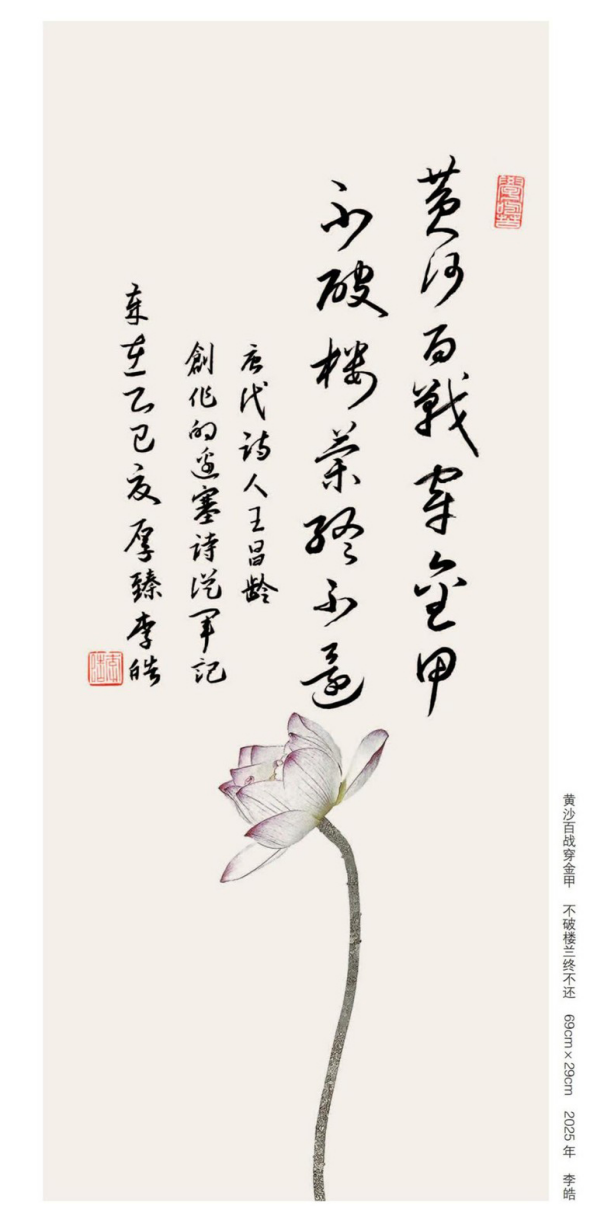 黄沙百戰穿金甲
不破楼蘭終不還
唐代诗人王昌龄
創作的邊塞詩從軍記
歲在乙巳夏厚臻李皓
黄沙百战穿金甲 不破楼兰终不还 69cm×29cm 2025年 李皓